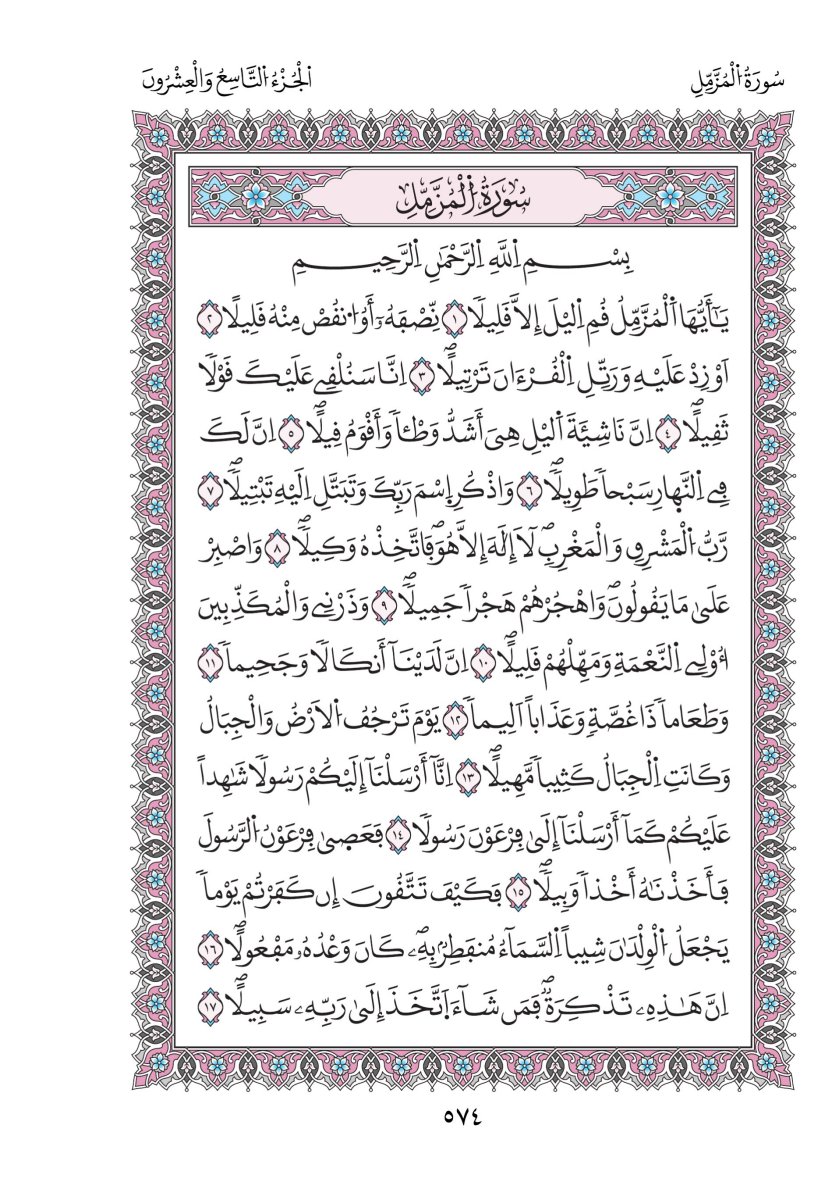 سُورَةُ اُ۬لْمُزَّمِّلِ
اَ۬لْجُزْءُ اُ۬لتَّاسِعُ وَالْعِشْرُونَ
سُورَةُ اُ۬لْمُزَّمِّلِ
بِسْمِ اِ۬للَّهِ اِ۬لرَّحْمَٰنِ اِ۬لرَّحِيمِ
يَٰٓأَيُّهَا اَ۬لْمُزَّمِّلُ قُمِ اِ۬ليْلَ إِلَّا قَلِيلٗا ١ نِّصْفَهُۥٓ أَوُ اُ۟نقُصْ مِنْهُ قَلِيلًا ٢
اَوْ زِدْ عَلَيْهِ وَرَتِّلِ اِ۬لْقُرْءَانَ تَرْتِيلًاۖ ٣ اِنَّا سَنُلْقِے عَلَيْكَ قَوْلٗا
ثَقِيلًاۖ ٤ اِنَّ نَاشِئَةَ اَ۬ليْلِ هِىَ أَشَدُّ وَطْـٔاٗ وَأَقْوَمُ قِيلًاۖ ٥ اِنَّ لَكَ
فِے اِ۬لنَّهارِ سَبْحاٗ طَوِيلٗاۖ ٦ وَاذْكُرِ اِ۪سْمَ رَبِّكَ وَتَبَتَّلِ اِلَيْهِ تَبْتِيلٗاۖ ٧
رَّبُّ اُ۬لْمَشْرِقِ وَالْمَغْرِبِۖ لَآ إِلَٰهَ إِلَّا هُوَۖ فَاتَّخِذْهُ وَكِيلٗاۖ ٨ وَاصْبِرْ
عَلَىٰ مَا يَقُولُونَۖ وَاهْجُرْهُمْ هَجْراٗ جَمِيلٗاۖ ٩ وَذَرْنِے وَالْمُكَذِّبِينَ
أُوْلِے اِ۬لنَّعْمَةِ وَمَهِّلْهُمْ قَلِيلًاۖ ١٠ اِنَّ لَدَيْنَآ أَنكَالٗا وَجَحِيماٗ ١١
وَطَعَاماٗ ذَا غُصَّةٖ وَعَذَاباً اَلِيماٗ ١٢ يَوْمَ تَرْجُفُ اُ۬لَارْضُ وَالْجِبَالُ
وَكَانَتِ اِ۬لْجِبَالُ كَثِيباٗ مَّهِيلًاۖ ١٣ اِنَّآ أَرْسَلْنَآ إِلَيْكُمْ رَسُولٗا شَٰهِداً
عَلَيْكُمْ كَمَآ أَرْسَلْنَآ إِلَىٰ فِرْعَوْنَ رَسُولٗا ١٤ فَعَصىٰ فِرْعَوْنُ اُ۬لرَّسُولَ
فَأَخَذْنَٰهُ أَخْذاٗ وَبِيلٗاۖ ١٥ فَكَيْفَ تَتَّقُونَ إِن كَفَرْتُمْ يَوْماٗ
يَجْعَلُ اُ۬لْوِلْدَٰنَ شِيباً اِ۬لسَّمَآءُ مُنفَطِرُۢ بِهِۦۖ كَانَ وَعْدُهُۥ مَفْعُولًاۖ ١٦
اِنَّ هَٰذِهِۦ تَذْكِرَةٞۖ فَمَن شَآءَ اَ۪تَّخَذَ إِلَىٰ رَبِّهِۦ سَبِيلًاۖ ١٧
٥٧٤